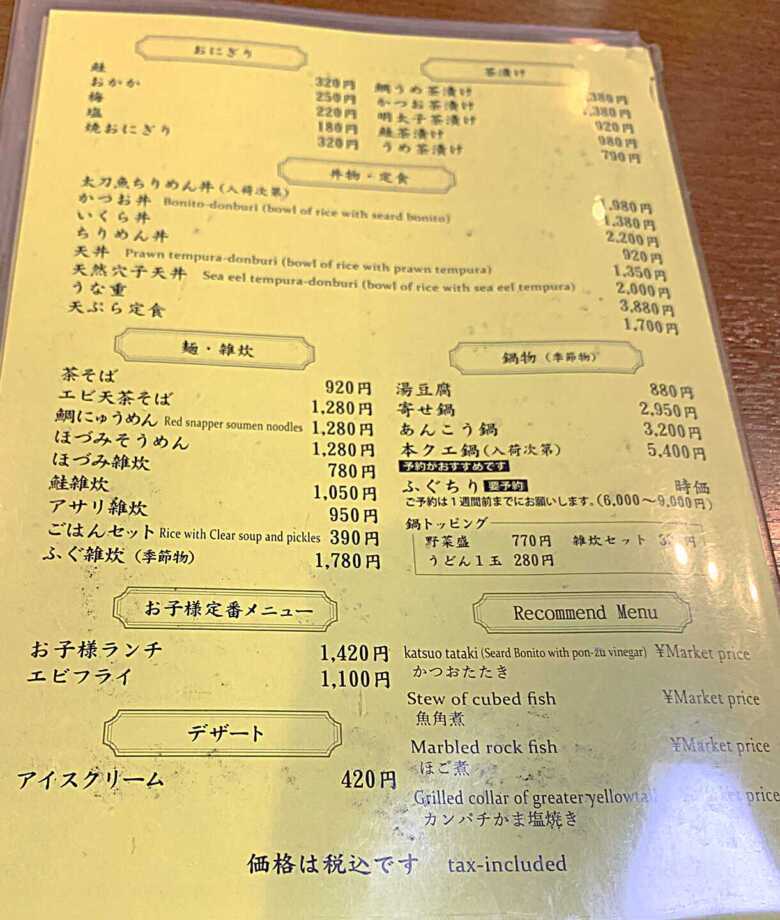 おにぎり
鮭 320円
おかか 250円
梅 220円
塩 180円
焼おにぎり 320円
茶漬け
鯛うめ茶漬け 1,380円
かつお茶漬け 1,380円
明太子茶漬け 920円
鮭茶漬け 980円
うめ茶漬け 790円
丼物・定食
太刀魚ちりめん丼(入荷次第) 1,980円
かつお丼 Bonito-donburi (bowl of rice with seard bonito) 1,380円
いくら丼 2,200円
ちりめん丼 920円
天丼 Prawn tempura-donburi (bowl of rice with prawn tempura) 1,350円
天然穴子天丼 Sea eel tempura-donburi (bowl of rice with sea eel tempura) 2,000円
うな重 3,880円
天ぷら定食 1,700円
麺・雑炊
茶そば 920円
エビ天茶そば 1,280円
鯛にゅうめん Red snapper soumen noodles 1,280円
ほづみそうめん 1,280円
ほづみ雑炊 780円
鮭雑炊 1,050円
アサリ雑炊 950円
ごはんセット Rice with Clear soup and pickles 390円
ふぐ雑炊(季節物) 1,780円
鍋物(季節物)
湯豆腐 880円
寄せ鍋 2,950円
あんこう鍋 3,200円
本クエ鍋(入荷次第) 5,400円
予約がおすすめです
ふぐちり 要予約 時価
ご予約は1週間前までにお願いします。(6,000〜9,000円)
鍋トッピング
野菜盛 770円 雑炊セット 円
うどん1玉 280円
お子様定番メニュー
お子様ランチ 1,420円
エビフライ 1,100円
デザート
アイスクリーム 420円
Recommend Menu
katsuo tataki (Seard Bonito with pon-zu vinegar) ¥Market price
かつおたたき
Stew of cubed fish ¥Market price
魚角煮
Marbled rock fish ¥Market price
ほご煮
Grilled collar of greater price
カンパチかま塩焼き
価格は税込です tax-included